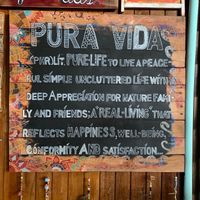 PURA VIDA
(PAR)LIT. PURE-LIFE: TO LIVE A PEACE-
FUL SIMPLE UNCLUTTERED LIFE WITH
DEEP APPRECIATION FOR NATURE FAM-
ILY AND FRIENDS; A "REAL-LIVING" THAT
REFLECTS HAPPINESS, WELL-BEING,
CONFORMITY AND SATISFACTION...